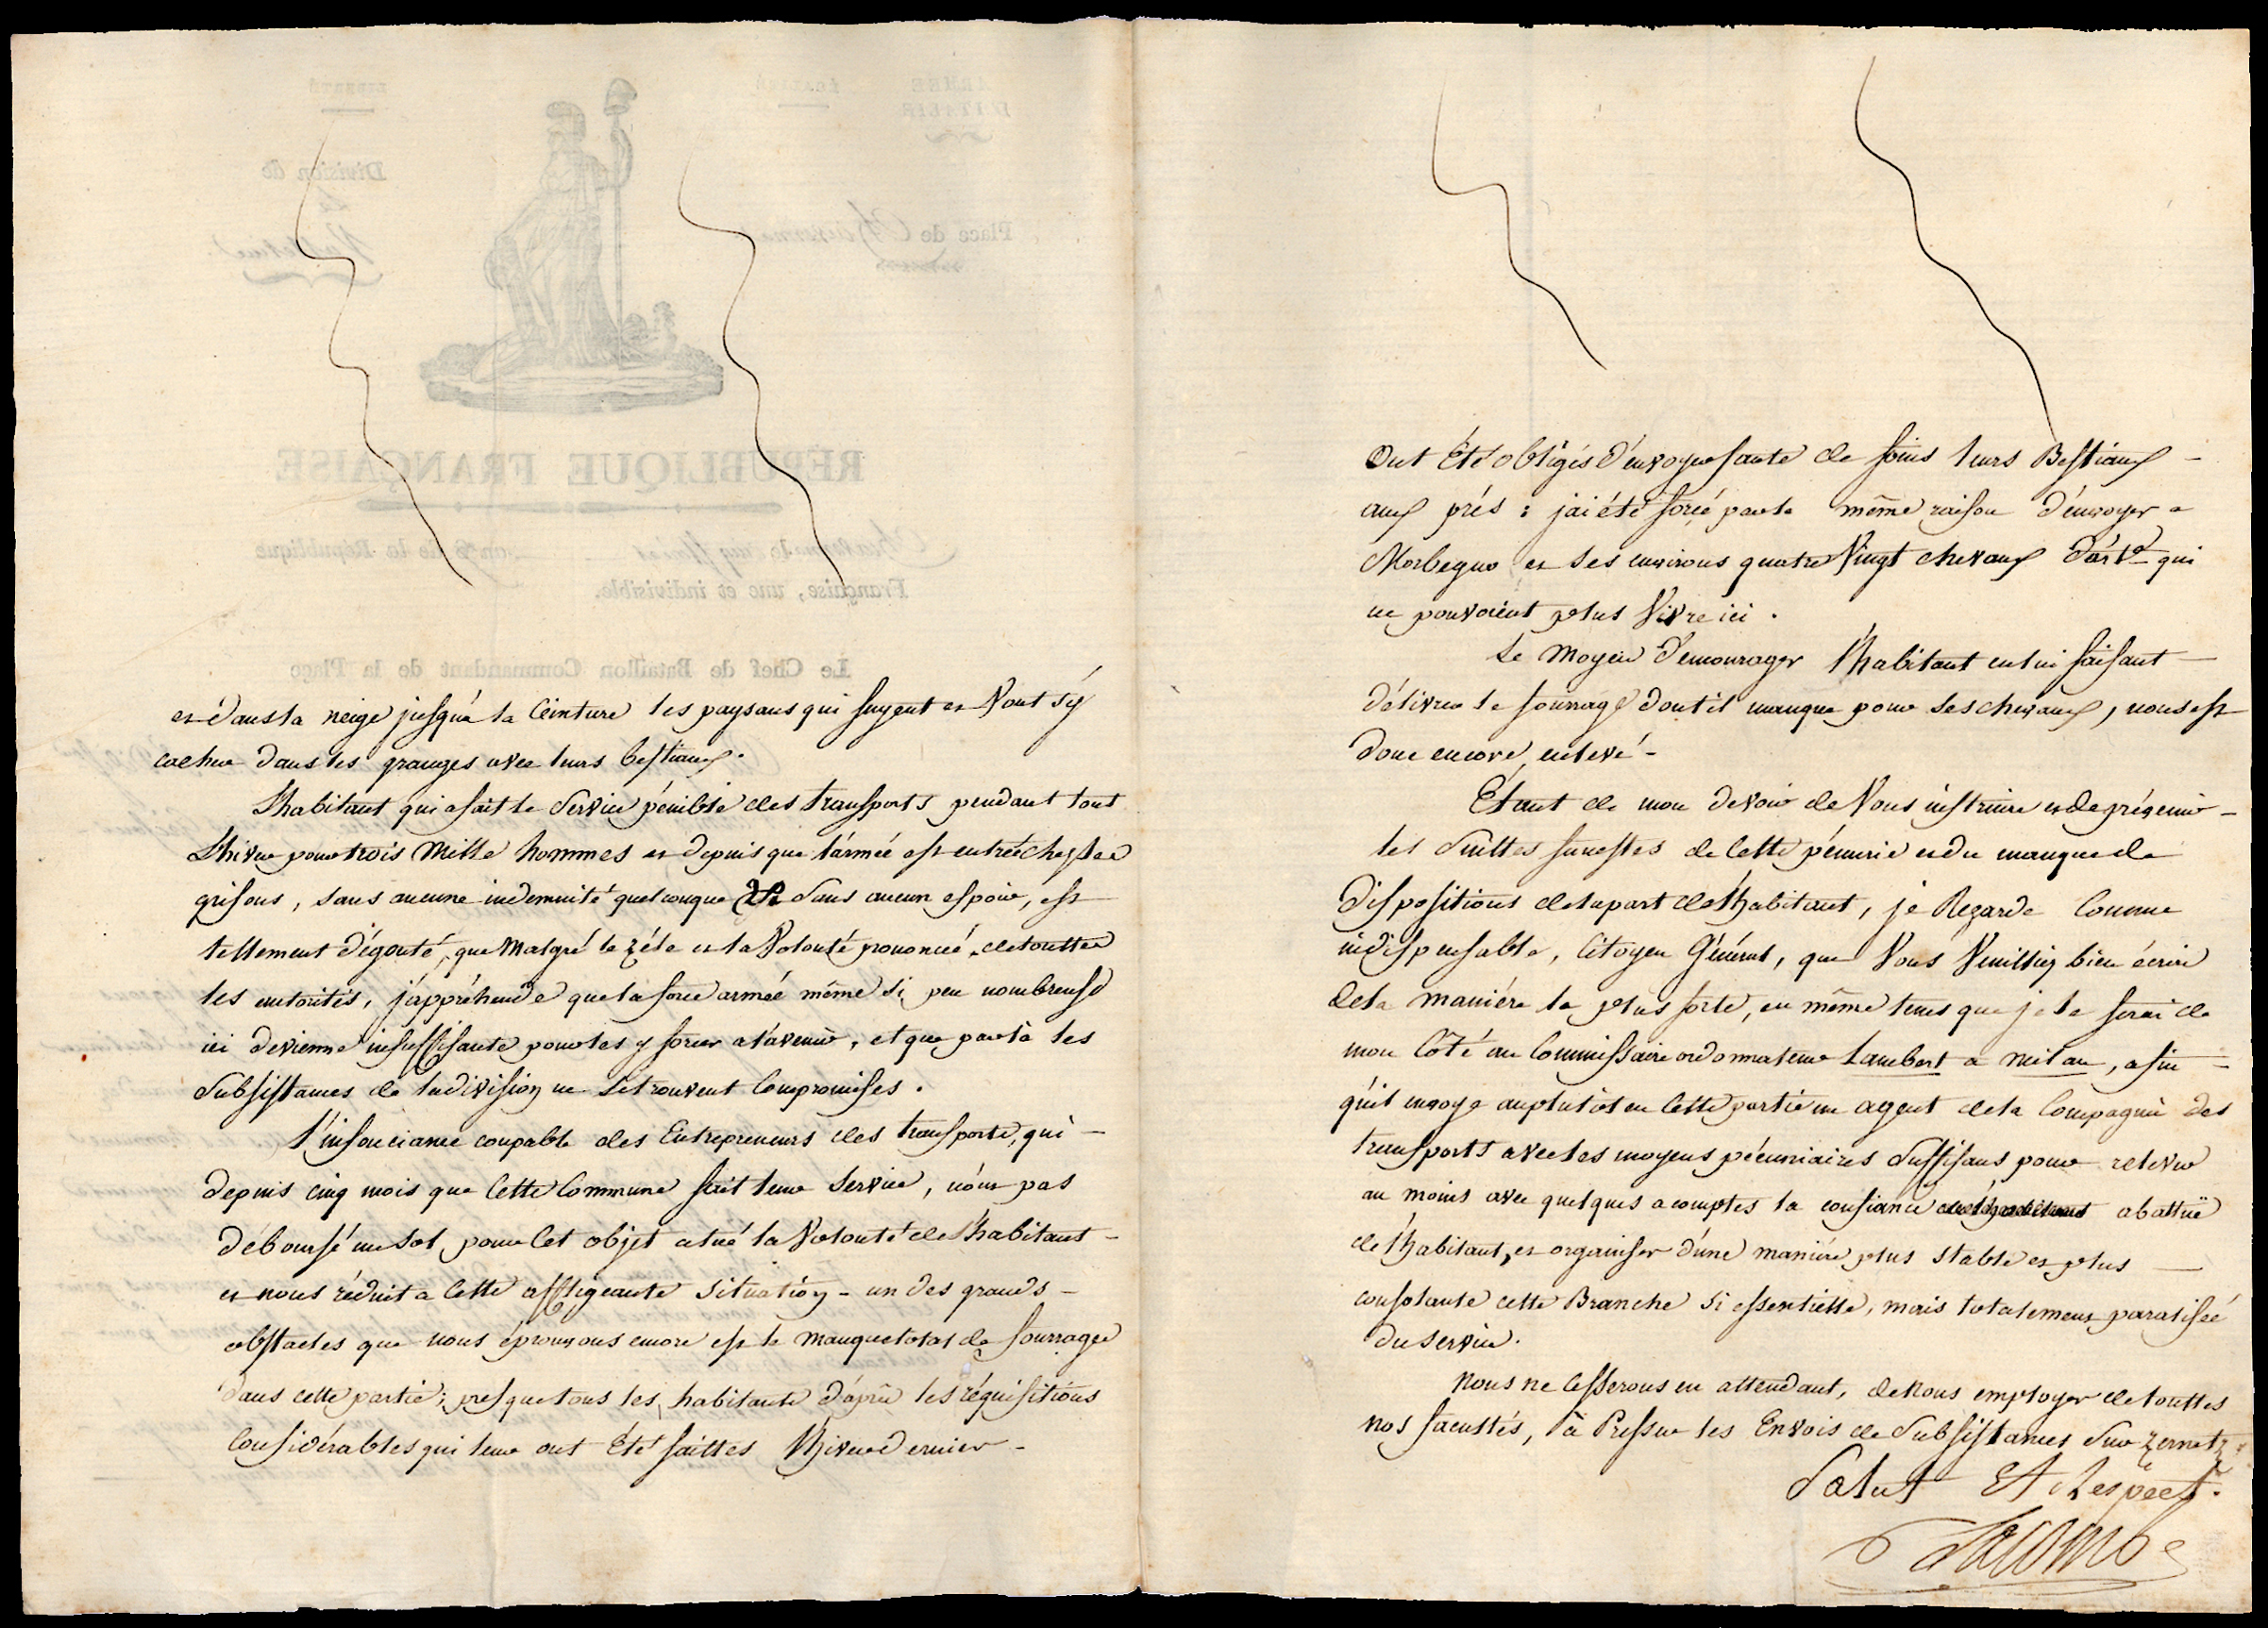 et dans la neige jusqu'a la Ceinture les paysans qui fuyent et Vont s'y
cacher dans les granges avec leurs bestiaux.
L'habitant qui a fait le Service pénible des transports pendant tout
L'hiver pour trois Mille hommes et depuis que l'armée est entrée chez les
grisons, sans aucune indemnité quelconque et sans aucun espoir, est
tellement dégouté, que Malgré le zéle et la Volonté prononcé de touttes
les autorités, j'appréhende que la force armée même si peu nombreuse
ici devienne insuffisante pour les y forcer a l'avenir, et que par là les
Subsistances de la division ne se trouvent Compromises.
L'insouciance coupable des Entrepreneurs des transports, qui -
depuis cinq mois que Cette Commune fait leur Service, n'ont pas
déboursé un sol pour Cet objet a tué la Volonté de l'habitant -
et nous réduit a Cette affligeante Situation - un des grands -
obstacles que nous éprouvons encore est le manque total de fourrages
dans cette partie; presque tous les habitants d'après les réquisitions
Considérables qui leur ont Été faittes l'hiver dernier -
Ont Été obligés d'envoyer faute de foins leurs Bestiaux -
aux prés : j'ai été forcé par la même raison d'envoyer a
Morbegno et ses environs quatre Vingt chevaux d'artie qui
ne pouvoient plus Vivre ici .
Le Moyen d'encourager l'habitant en lui faisant -
délivrer le fourrage dont il manque pour ses chevaux, nous est
donc encore enlevé -
Étant de mon devoir de Vous instruire et de prévenir -
les Suittes funestes de Cette pénurie et du manque de
Dispositions de la part de l'habitant, je Regarde Comme
indispensable, Citoyen Général, que Vous Veuilliez bien écrire
de la maniére la plus forte, en même tems que je le ferai de
mon Côté au Commissaire ordonnateur Lambert a milan, afin -
qu'il envoye au plutot en Cette partie un agent de la Compagnie des
transports avec les moyens pécuniaires Suffisans pour relever
au moins avec quelques acomptes la confiance abattuë
de l'habitant, et organiser d'une maniére plus stable et plus -
consolante cette Branche si essentielle, mais totalement paralisée
du Service.
Nous ne Cesserons en attendant, de nous employer de touttes
nos facultés, à Presser les Envois de Subsistances Sur Zernetz
Salut Et Respect.
Lacombe
REPUBLIQUE FRANÇAISE
Française, une et indivisible.
Le Chef de Bataillon Commandant de la Place